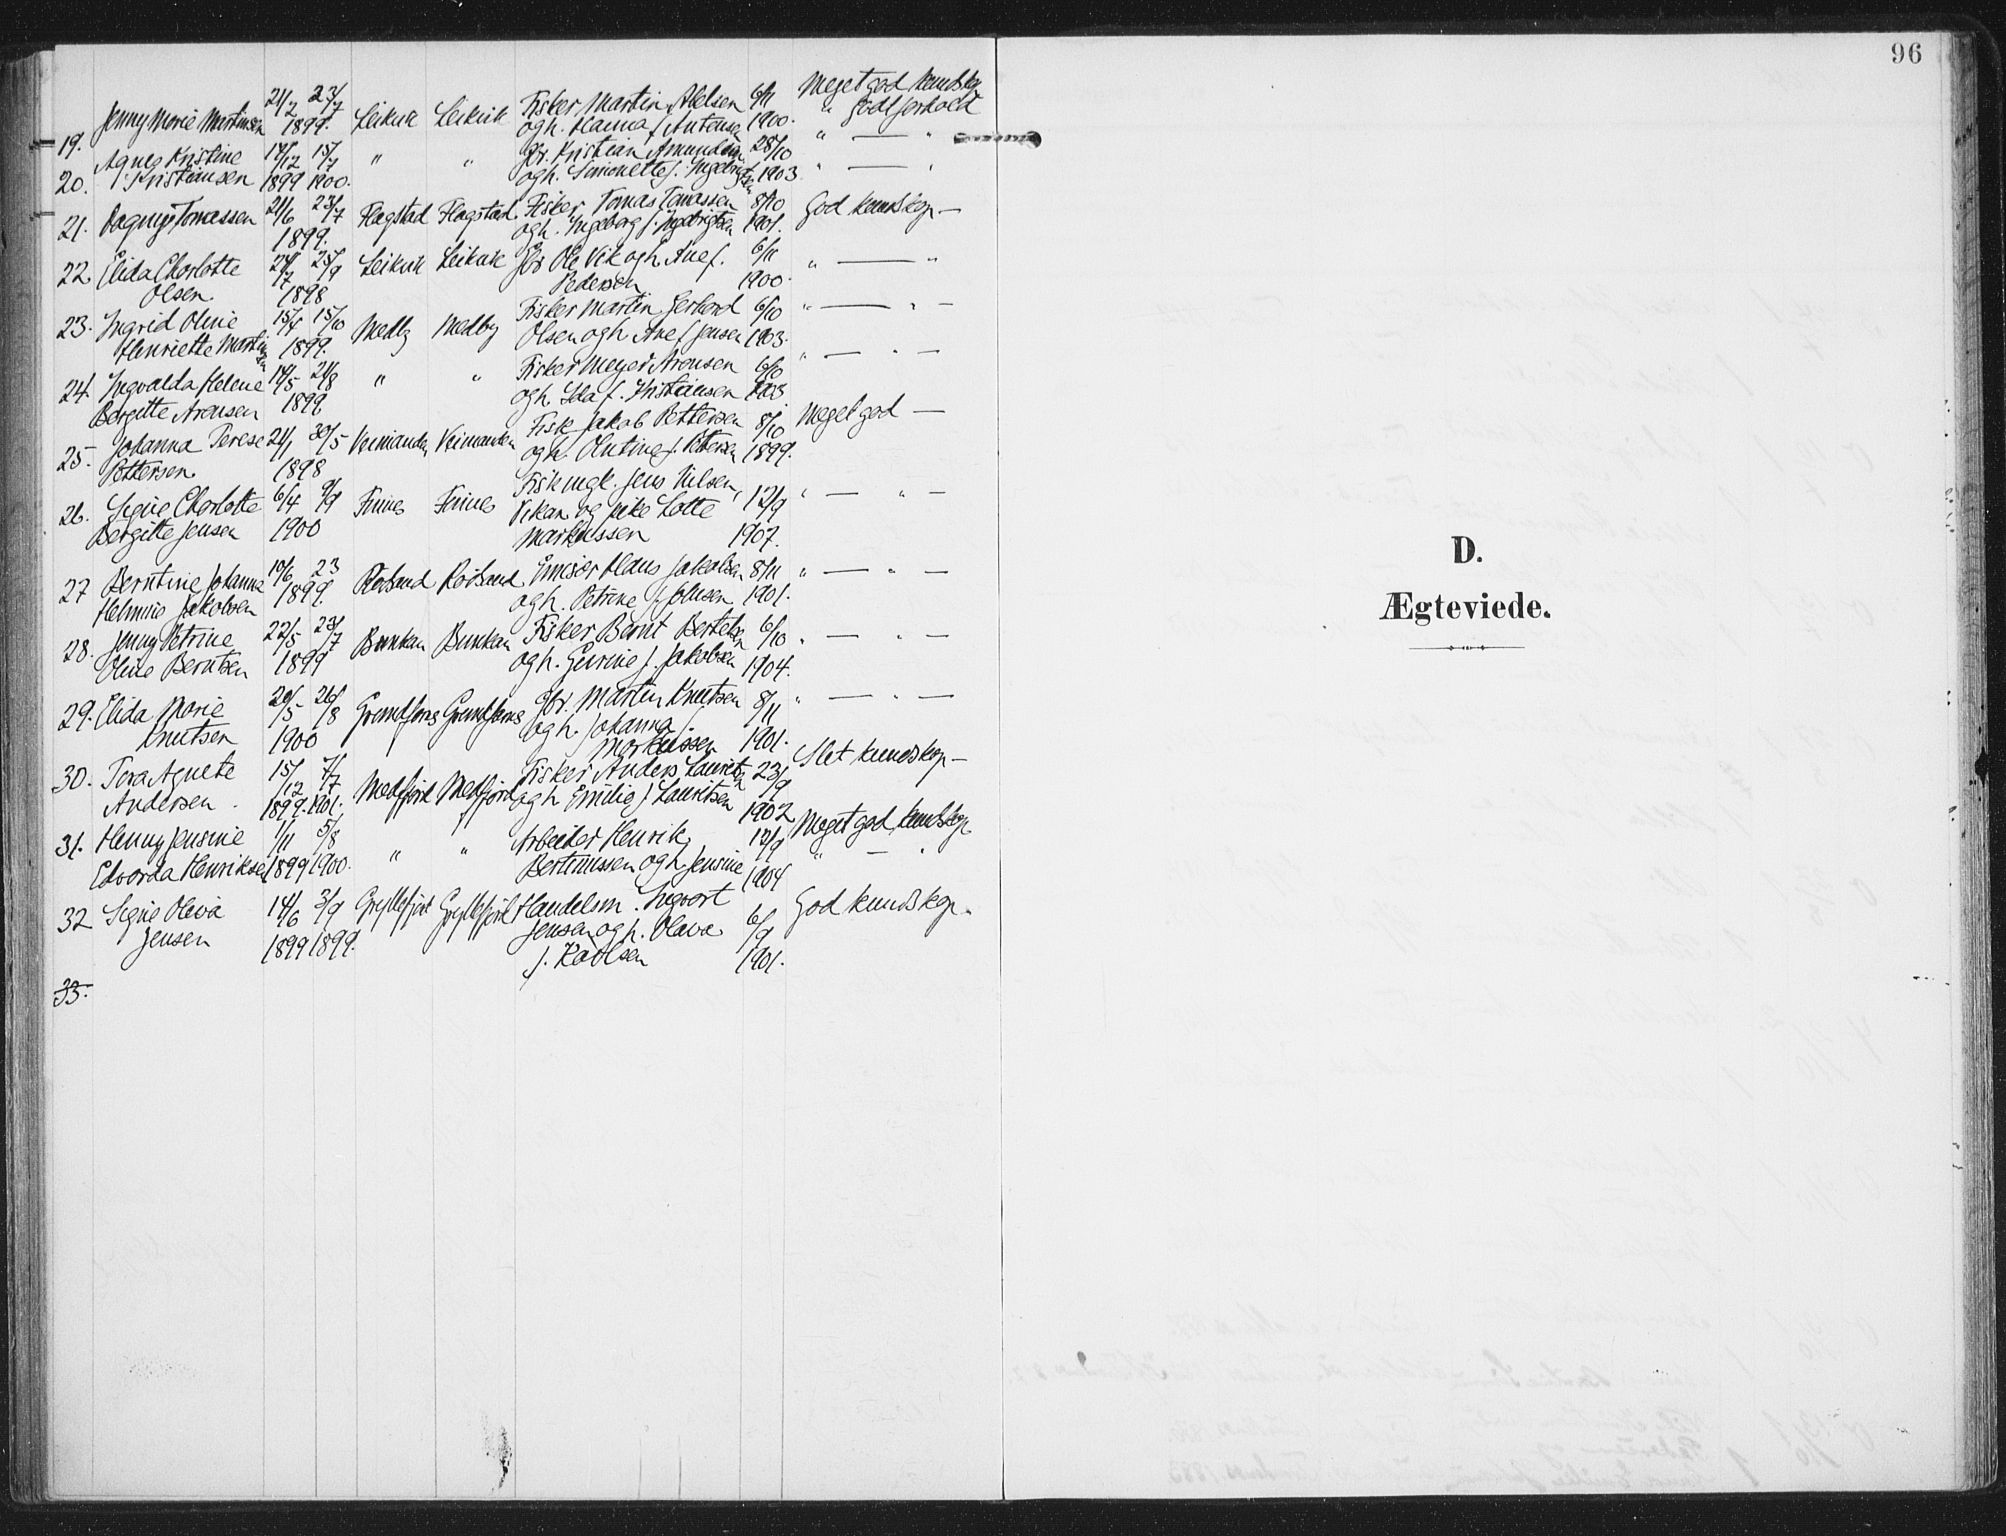 96
19. Jenny Marie Martinsen 21/2 23/7 1899. Leikvik Leikvik Fisker Martin Abelsen ogh. Hanna f. Antonsen 6/11 1900. Meget god kundskp. " Godt forhold
20. Agnes Kristine Kristiansen 17/12 1899 15/7 1900. " " Gbr. Kristian Amundsen ogh. Simonette f. Ingebrigtsen 28/10 1903. " — "
21. Dagny Tomassen 21/6 23/7 1899. Flagstad Flagstad. Fisker Tomas Tomassen ogh. Ingeborg f. Ingebrigtsen 8/10 1901. God kundskap —
22. Elida Charlotte Olsen 24/7 25/9 1898 Leikvik Leikvik Gbr Ole Vik ogh. Ane f. Pedersen 6/11 1900. " — "
23. Ingrid Oline Henriette Martinsen 15/4 15/10 1899. Medby Medby Fisker Martin Gerhard Olsen ogh Ane f Jensen 6/10 1903. " — " —
24. Ingvalda Helene Bergitte Aronsen 14/5 21/8 1899 " " Fisker Meyer Aronsen ogh. Ida f. Kristiansen 6/10 1903 " — " —
25. Johanna Terese Pettersen 21/1 30/5 1898 Veimanden Veimanden Fisk Jakob Pettersen ogh. Olutine f. Pettersen 8/10 1899. Meget god —
26. Signe Charlotte Bergitte Jensen 6/4 9/9 1900 Finnes Finnes Fisk ugk. Jens Nilsen, Vikan og pike Lotte Markussen 12/9 1907. " — " —
27 Berntine Johanna Helmine Jakobsen 10/6 23 1899. Rødsand Rødsand Emisær Hans Jakobsen ogh. Petrine f. Johnsen 8/11 1901. " — " —
28. Jenny Petrine Oline Berntsen 22/5 23/7 1899 Bunkan Bunkan Fisker Bernt Bertelsen ogh. Gurine f. Jakobsen 6/10 1904. " — " —
29. Elida Marie Knutsen 20/5 26/8 1900 Grundfarnes Grundfarnes Gbr. Martin Knutsen ogh. Johanna f. Markussen 8/11 1901. " — " —
30. Tora Agnete Andersen. 15/12 1899. 7/7 1901. Medfjord Medfjord Fisker Anders Lauritsen ogh Emilie f. Lauritsen 23/9 1902 Slet kundskap —
31. Henny Jensine Edvarda Henriksen 1/11 1899 5/8 1900. " " Arbeider Henrik Bertinussen ogh. Jensine 12/9 1904 Meget god kundskp. " — "
32 Signe Olava Jensen 14/6 1899 3/9 1899. Gryllefjord Gryllefjord Handelsm. Ingvart Jensen ogh. Olava f. Karlsen 6/9 1901. God kundskap.
33.
D.
Ægteviede.